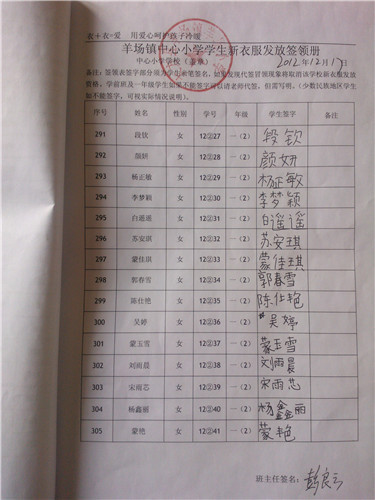 衣+衣=爱 用爱心呵护孩子冷暖
羊场镇中心小学学生新衣服发放签领册
中心小学学校（盖章） 2012年12月17日
备注：签领表签字部分须为学生亲笔签名，如果发现代签冒领现象将取消该学校新衣服发放
资格，学前班及一年级学生如果不能签字可以请老师代签，但需写明。（少数民族地区学生
如不能签字，可视实际情况说明）。
序号 姓名 性别 学号 年级 学生签字 备注
291 段钦 女 12②27 一（2） 段钦
292 颜妍 女 12②28 一（2） 颜妍
293 杨正敏 女 12②29 一（2） 杨正敏
294 李梦颖 女 12②30 一（2） 李梦颖
295 白遥遥 女 12②31 一（2） 白遥遥
296 苏安琪 女 12②32 一（2） 苏安琪
297 蒙佳琪 女 12②33 一（2） 蒙佳琪
298 郭春雪 女 12②34 一（2） 郭春雪
299 陈仕艳 女 12②35 一（2） 陈仕艳
300 吴婷 女 12②36 一（2） 吴婷
301 蒙玉雪 女 12②37 一（2） 蒙玉雪
302 刘雨晨 女 12②38 一（2） 刘雨晨
303 宋雨芯 女 12②39 一（2） 宋雨芯
304 杨鑫丽 女 12②40 一（2） 杨鑫丽
305 蒙艳 女 12②41 一（2） 蒙艳
班主任签名：